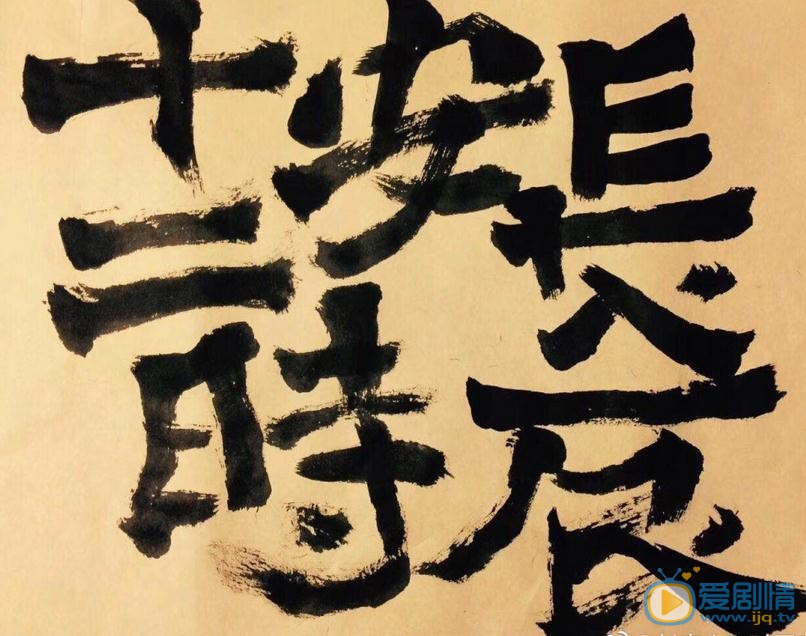 長安十二
時辰
爱剧情
www.ijq.tv